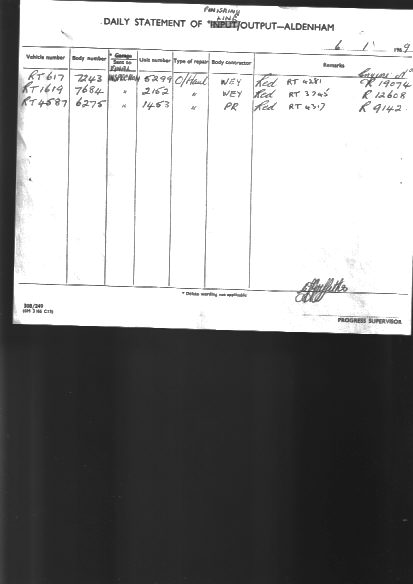 FINISHING
LINE
DAILY STATEMENT OF *INPUT/OUTPUT—ALDENHAM
6 1 1969
Vehicle number Body number * Garage Sent to Unit number Type of repair Body contractor Remarks Engine No
RT617 7243 INSPECTION 5299 O/Haul WEY Red RT 4281 R 19074
RT1619 7684 " 2152 " WEY Red RT R 12608
RT4587 6275 " 1453 " PR Red RT 4317 R 9142
* Delete wording not applicable
308/249
PROGRESS SUPERVISOR